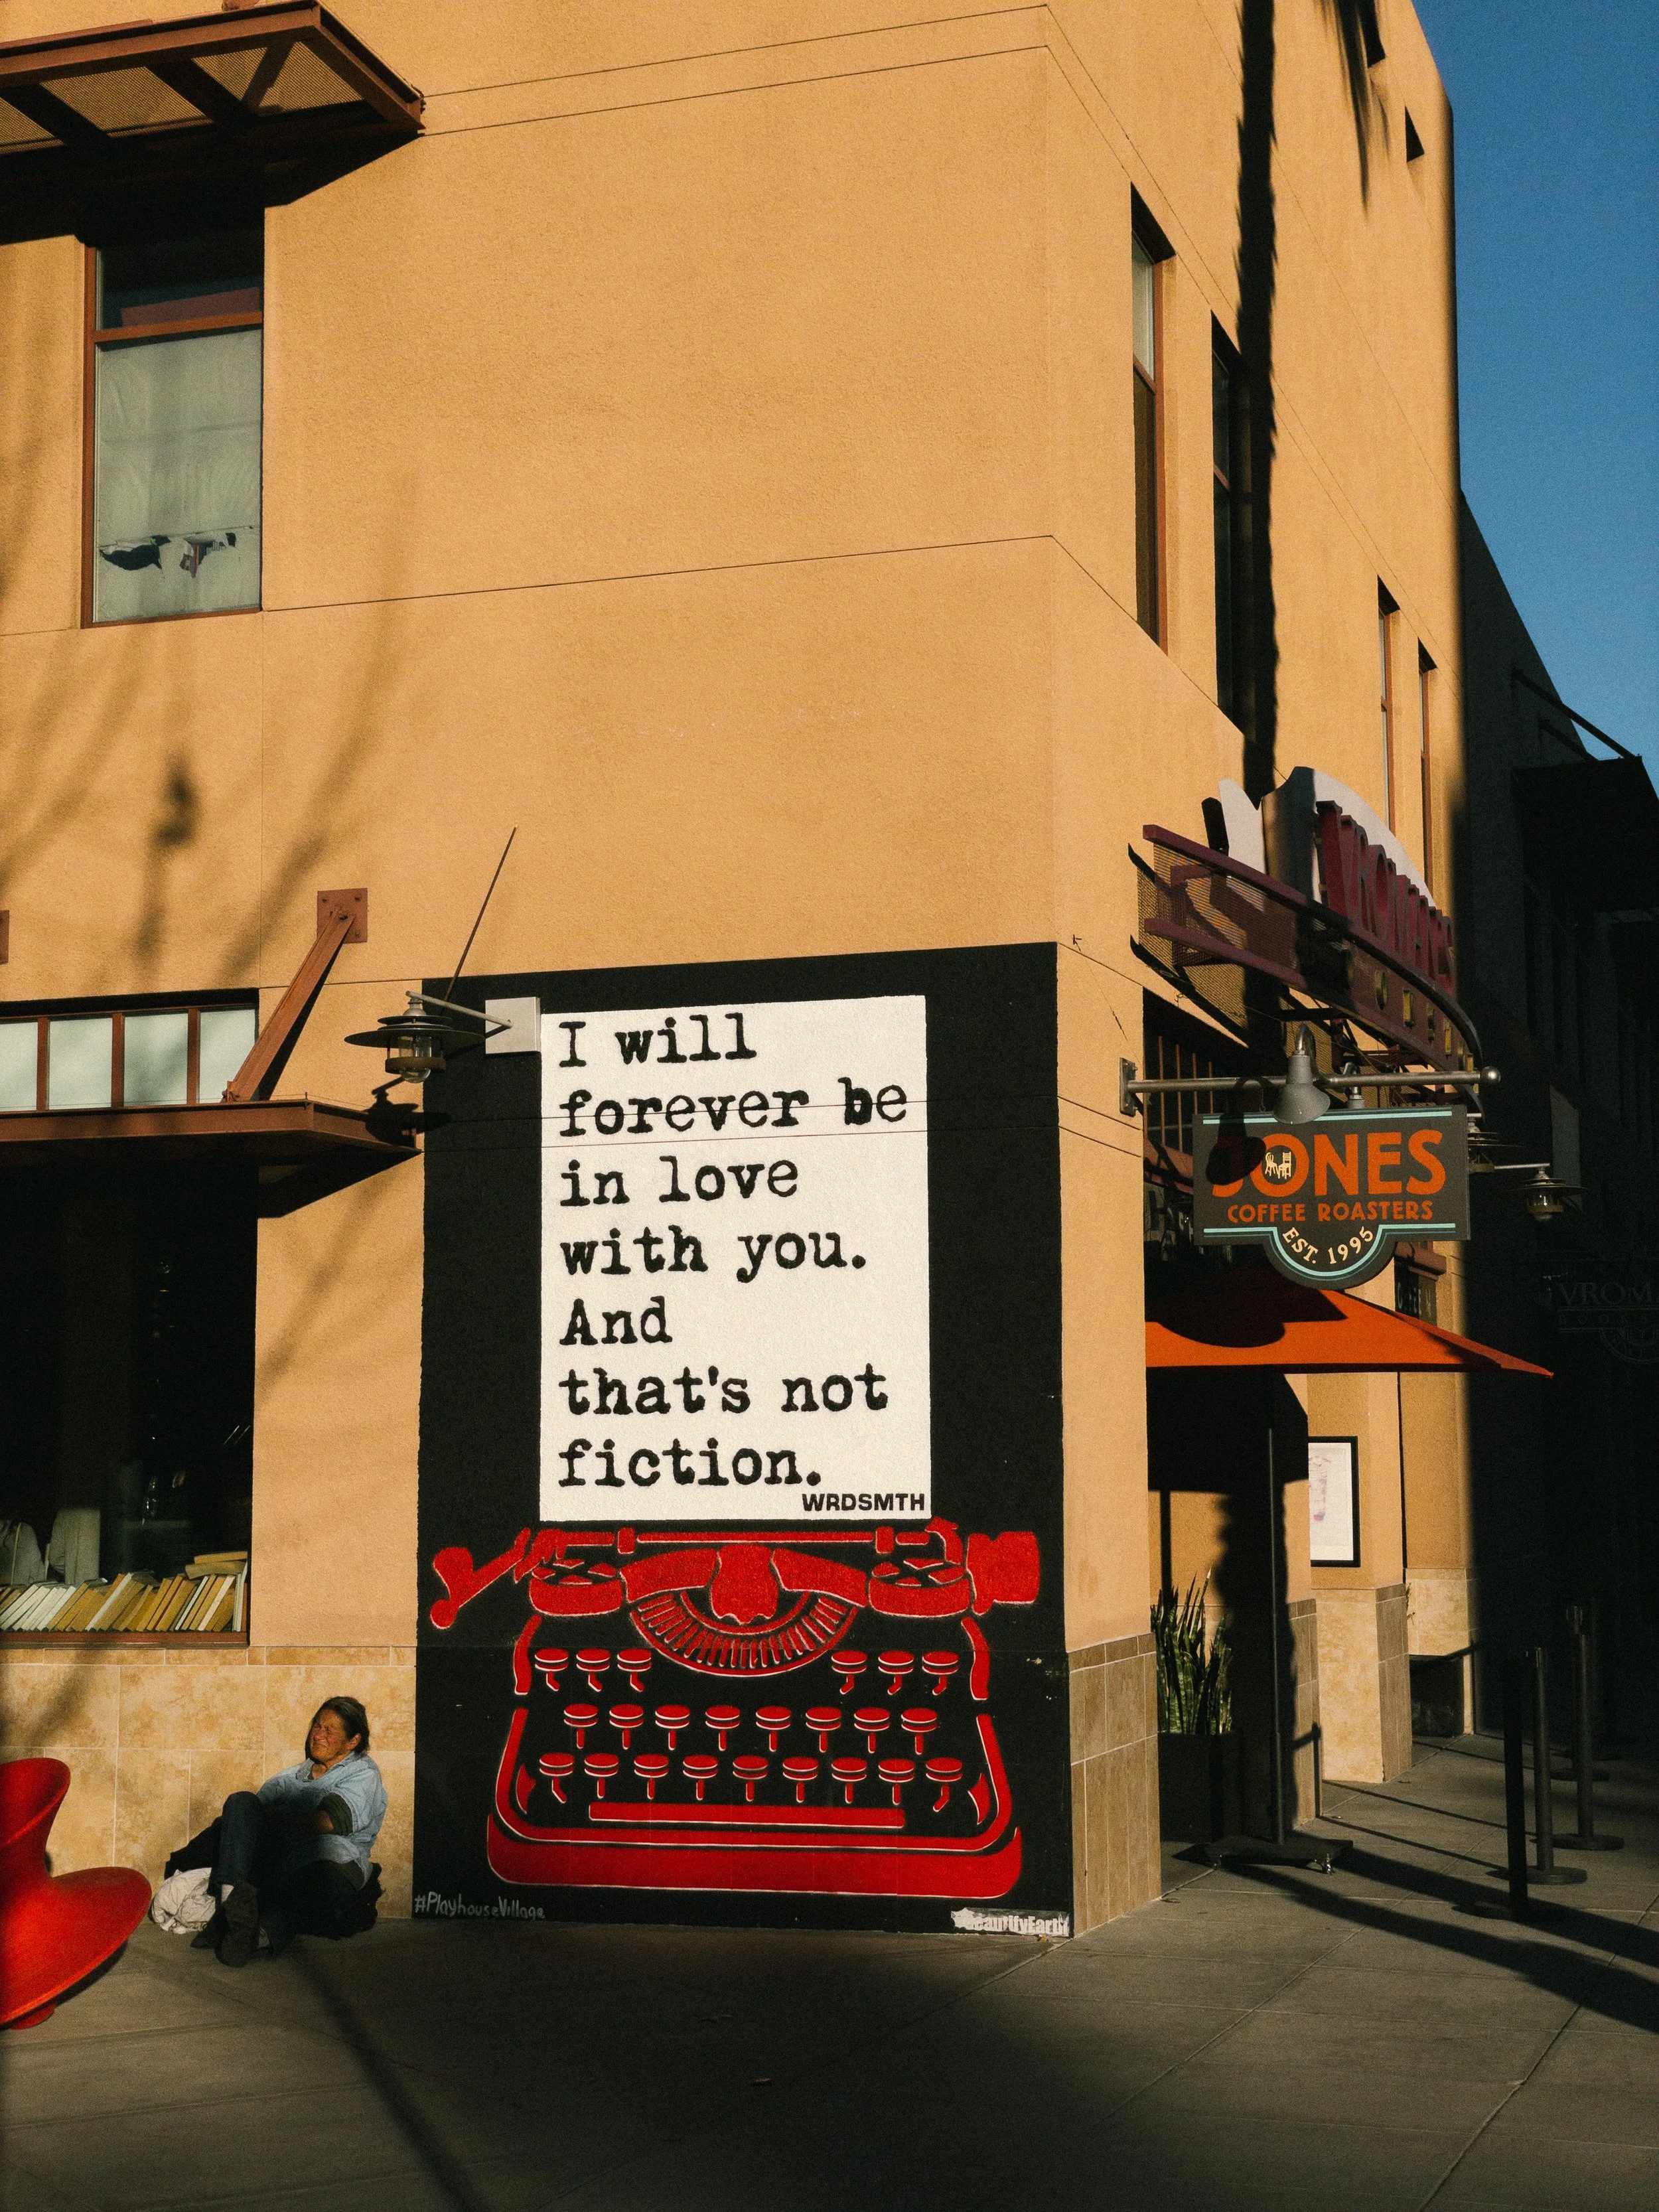 I will
forever be
in love
with you.
And
that's not
fiction.
WRDSMTH
#PlayhouseVillage
VROMAN'S
JONES
COFFEE ROASTERS
EST. 1995
VROM